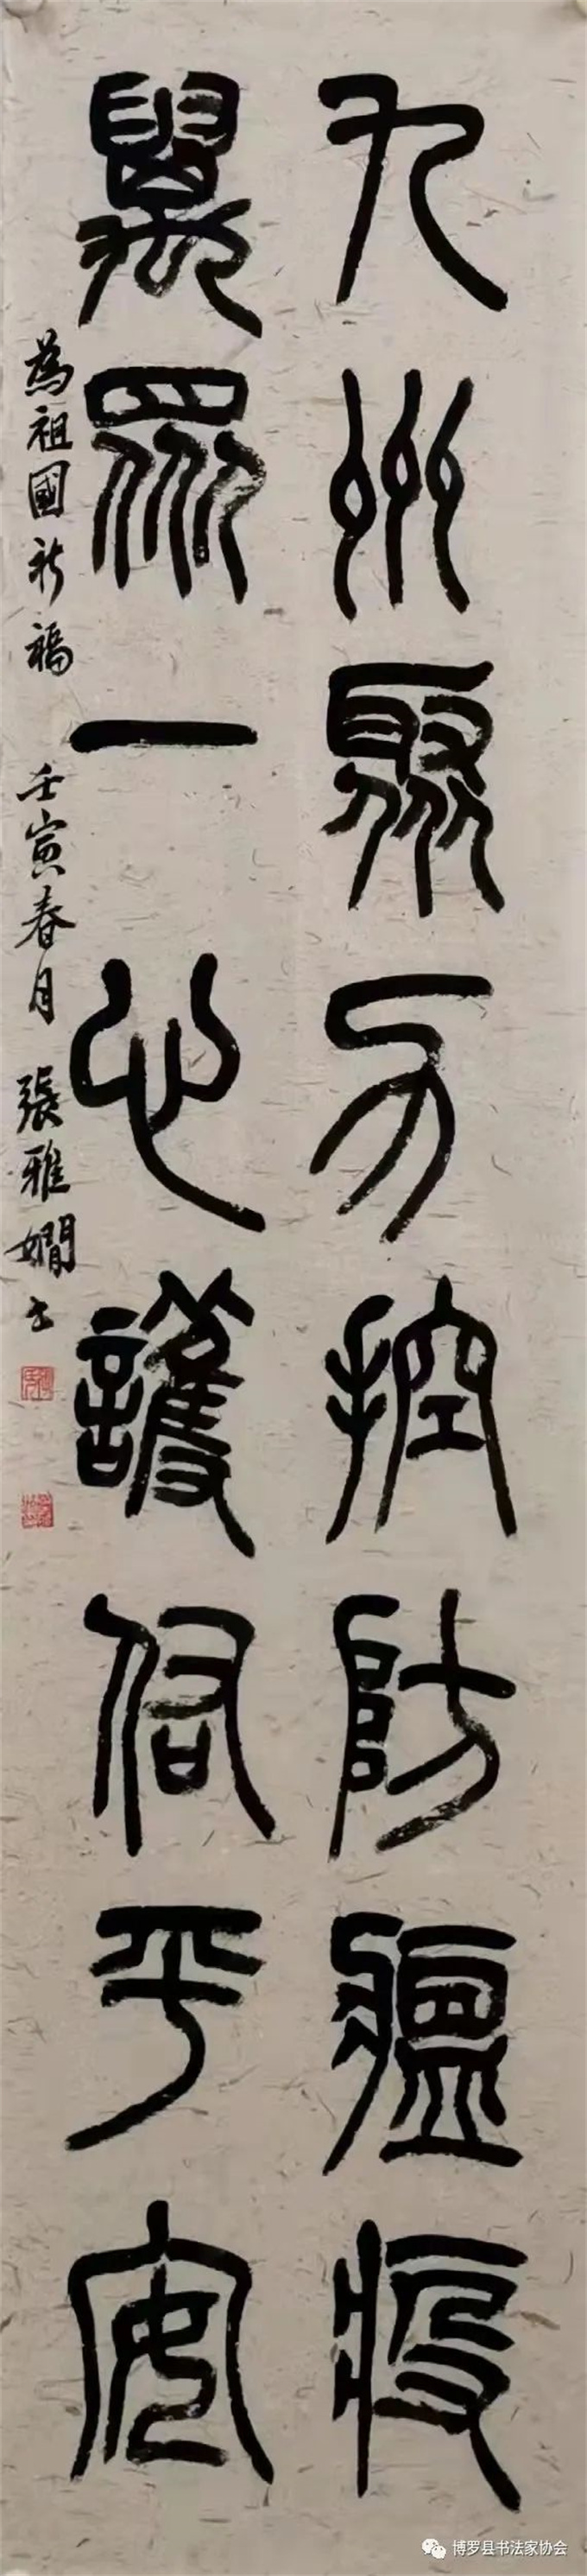 九州聚力控防瘟疫
萬眾一心護佑平安
為祖國祈福 壬寅春月 張雅嫺书
博罗县书法家协会